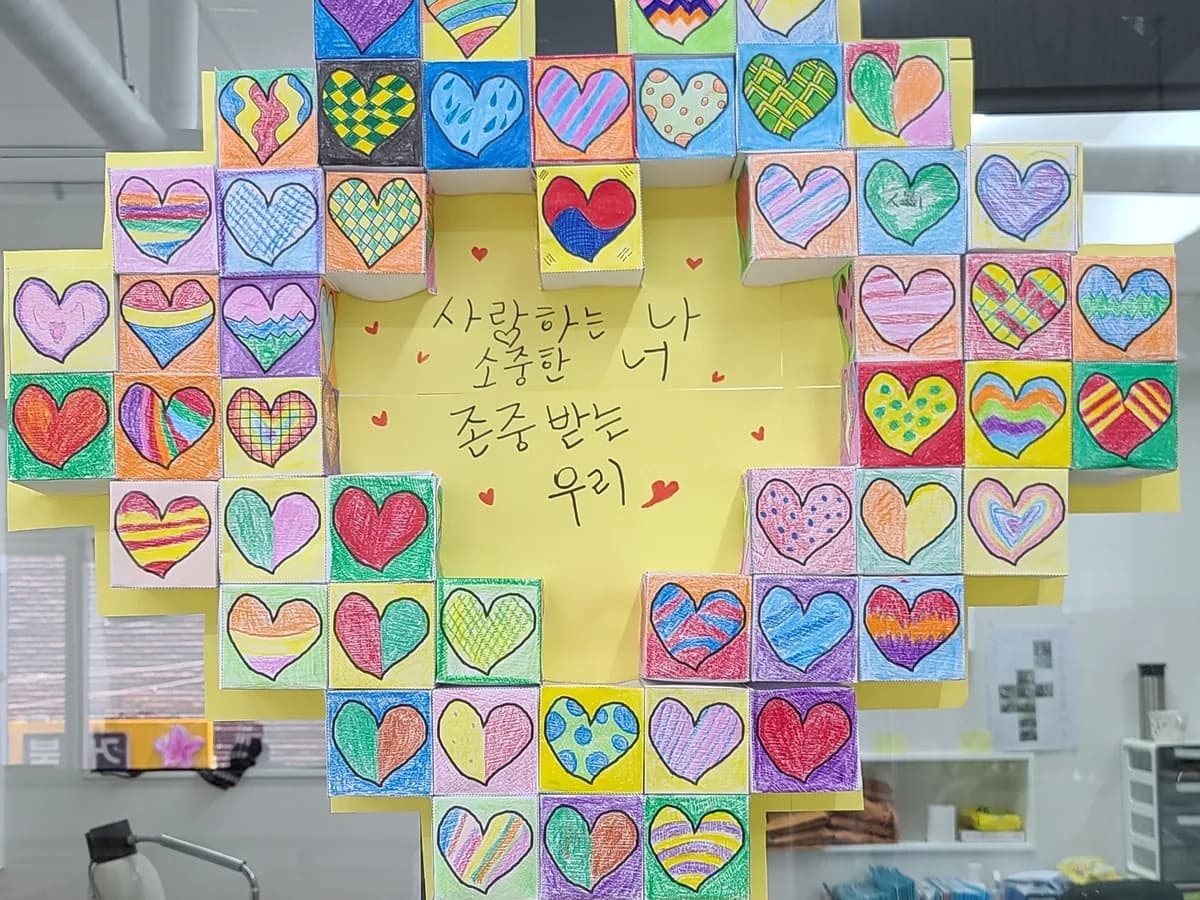 사랑하는 나
소중한 너
존중받는
우리